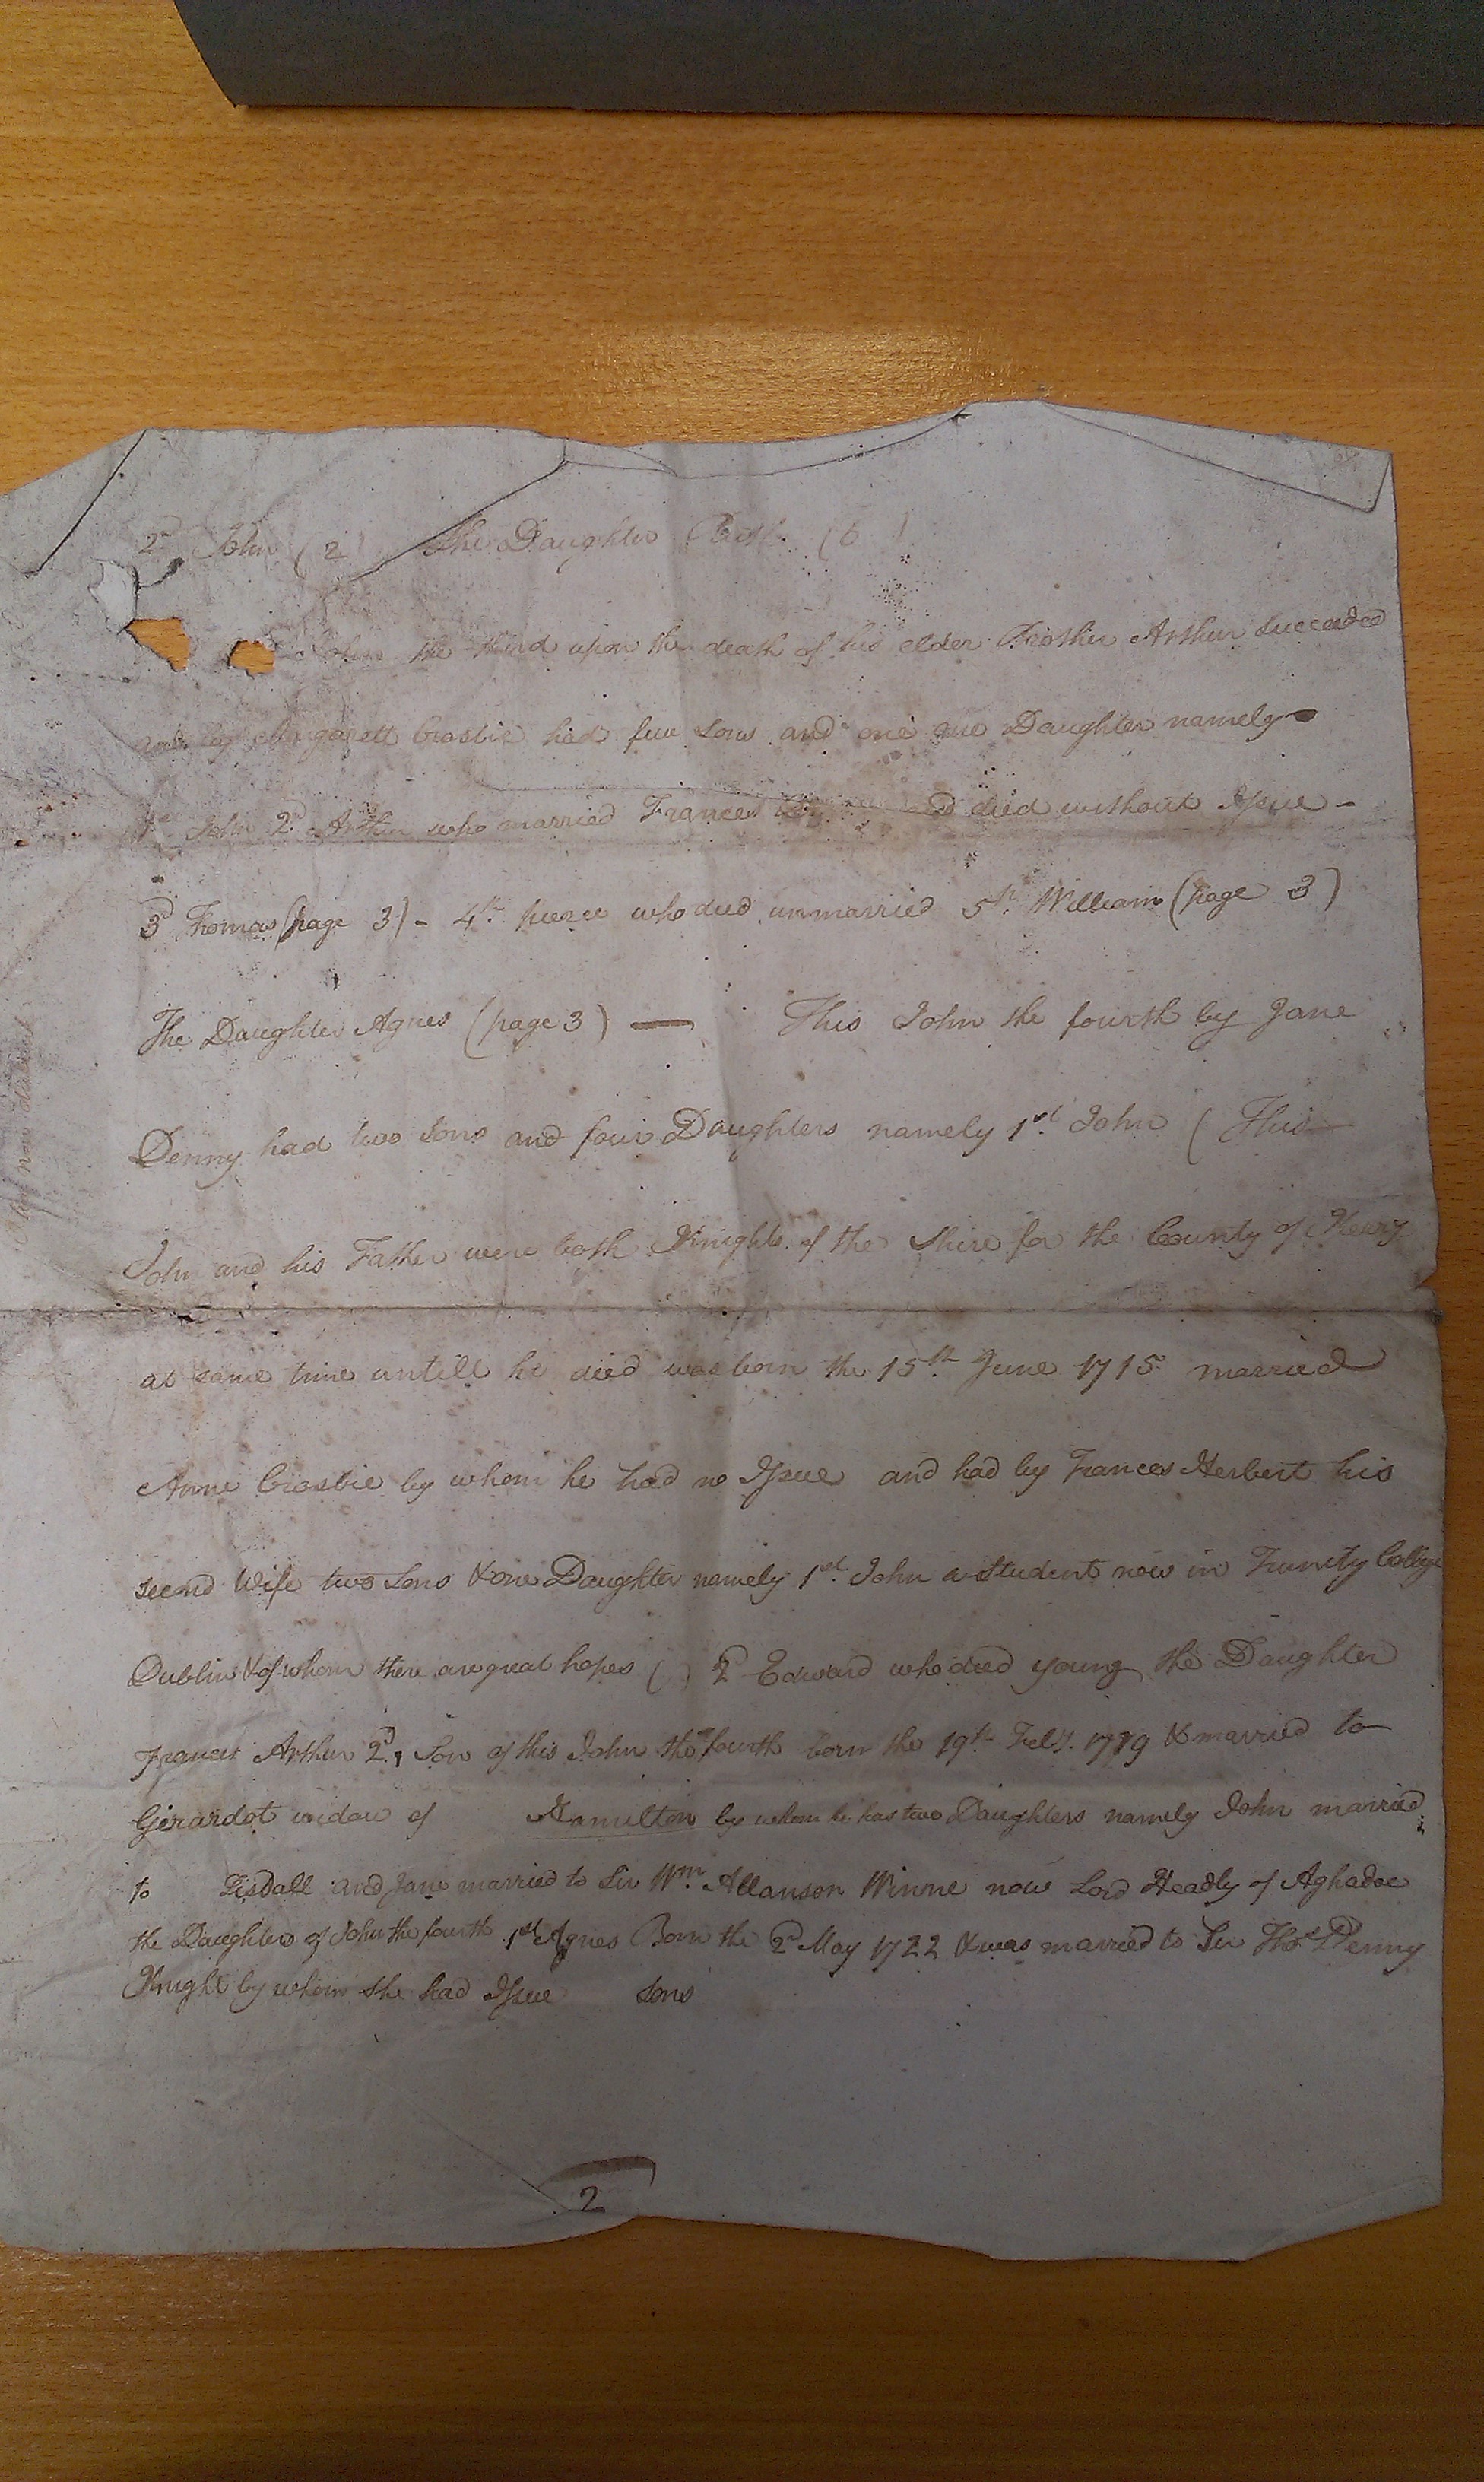 2d John (2) The Daughter (6)
John the third upon the death of his elder Brother Arthur succeeded
and by Margarett Crosbie had five sons and one Daughter namely
1st John 2d Arthur who married Frances died without Issue -
3d Thomas (page 3) - 4th pierce who died unmarried 5th William (page 3)
The Daughter Agnes (page 3) — This John the fourth by Jane
Denny had two sons and four Daughters namely 1st John ( This
John and his Father were both Knights of the Shire for the County of Kerry
at same time untill he died was born the 15th June 1715 married
Anne Crosbie by whom he had no Issue and had by Frances Herbert his
second Wife two Sons & one Daughter namely 1st John a Student now in Trinity College
Dublin & of whom there are great hopes ( ) 2d Edward who died young the Daughter
Frances Arthur 2d Son of this John the fourth born the 19th Feby. 1719 & married to
Girardot widow of Hamilton by whom he has two Daughters namely John married
to Tisdall and Jane married to Sir Wm. Allanson Winne now Lord Headly of Aghadoe
the Daughters of John the fourth 1st Agnes Born the 2d May 1722 & was married to Sir Thos Denny
Knight by whom she had Issue sons
2